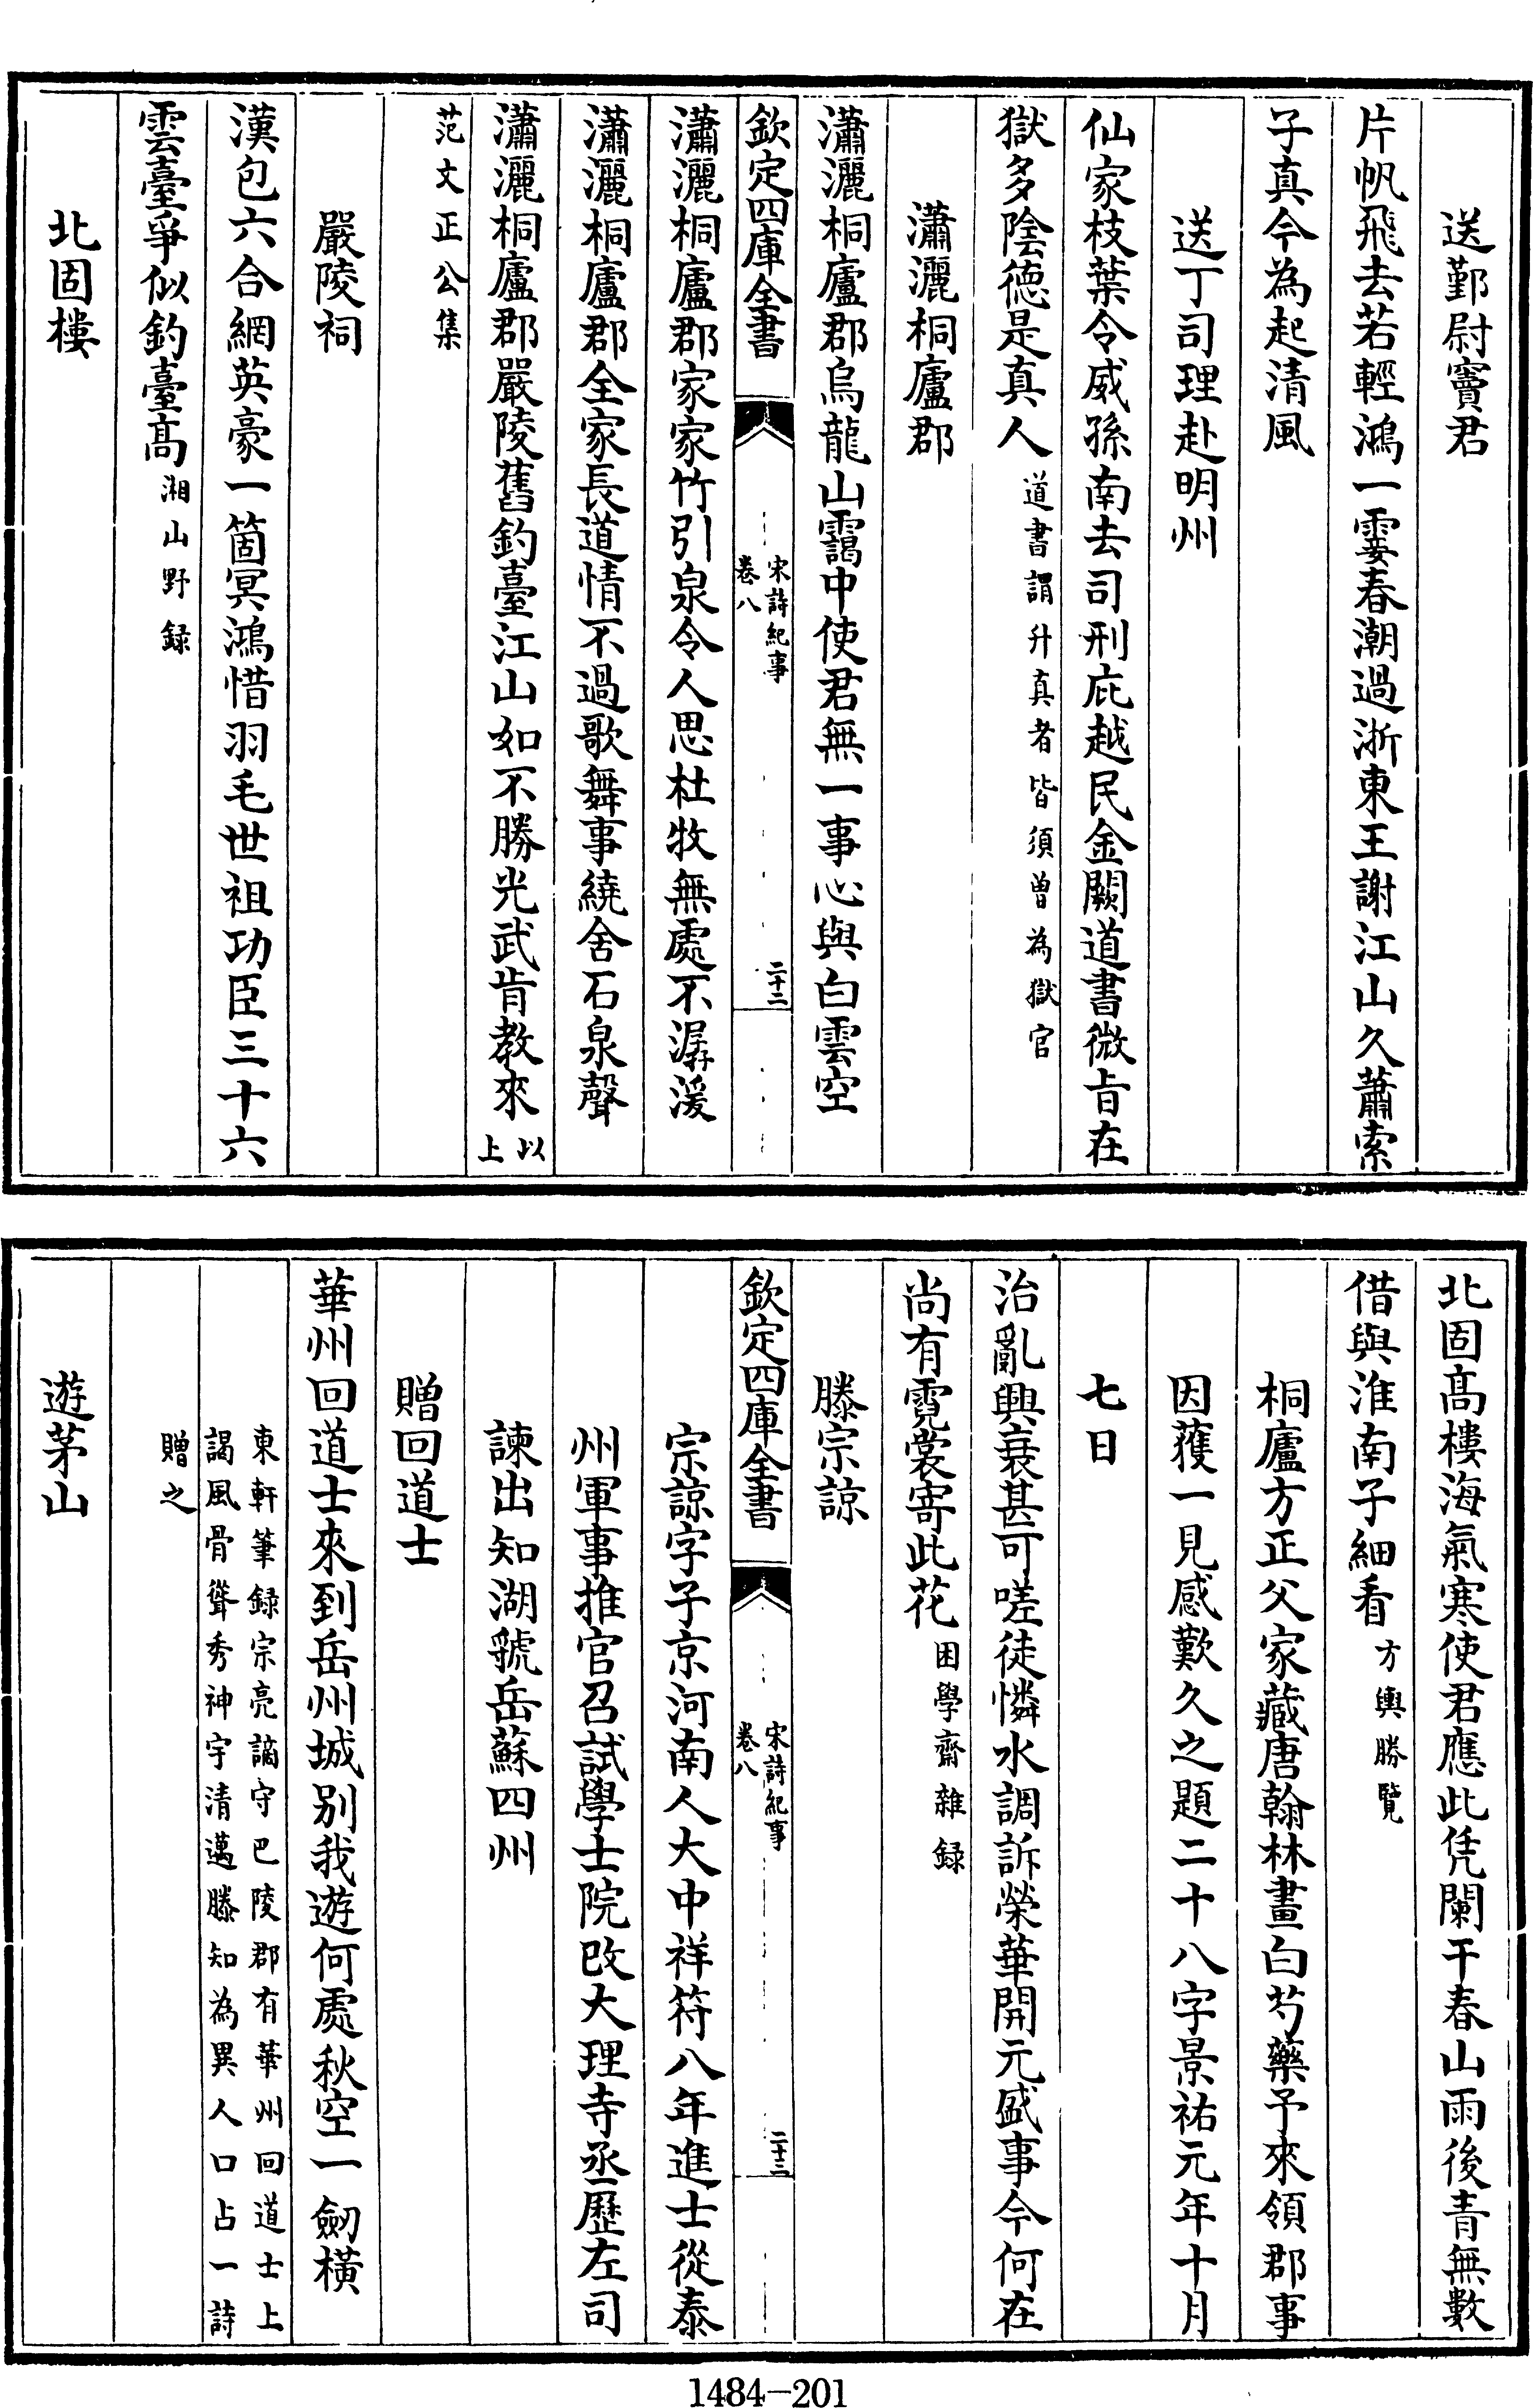 送鄞尉竇君
片帆飛去若輕鴻一霎春潮過浙東王謝江山久蕭索
子真今為起清風
送丁司理赴明州
仙家枝葉令威孫南去司刑庇越民金闕道書微旨在
獄多陰德是真人道書謂升真者皆須曽為獄官
瀟灑桐廬郡
瀟灑桐廬郡烏龍山靄中使君無一事心與白雲空
欽定四庫全書
宋詩紀事
卷八
二十二
瀟灑桐廬郡家家竹引泉令人思杜牧無處不潺湲
瀟灑桐廬郡全家長道情不過歌舞事繞舍石泉聲
瀟灑桐廬郡嚴陵舊釣臺江山如不勝光武肯教來以上
范文正公集
嚴陵祠
漢包六合網英豪一箇冥鴻惜羽毛世祖功臣三十六
雲臺爭似釣臺髙湘山野録
北固樓
北固髙樓海氣寒使君應此凭闌干春山雨後青無數
借與淮南子細看方輿勝覽
桐廬方正父家藏唐翰林畫白芍藥予來領郡事
因獲一見感歎久之題二十八字景祐元年十月
七日
治亂興衰甚可嗟徒憐水調訴榮華開元盛事今何在
尚有霓裳寄此花困學齋雜録
滕宗諒
欽定四庫全書
宋詩紀事
卷八
二十三
宗諒字子京河南人大中祥符八年進士從泰
州軍事推官召試學士院改大理寺丞歷左司
諫出知湖虢岳蘇四州
贈回道士
華州回道士來到岳州城别我遊何處秋空一劒橫
東軒筆録宗亮謫守巴陵郡有華州回道士上
謁風骨聳秀神宇清邁滕知為異人口占一詩
贈之
遊茅山
1484-201